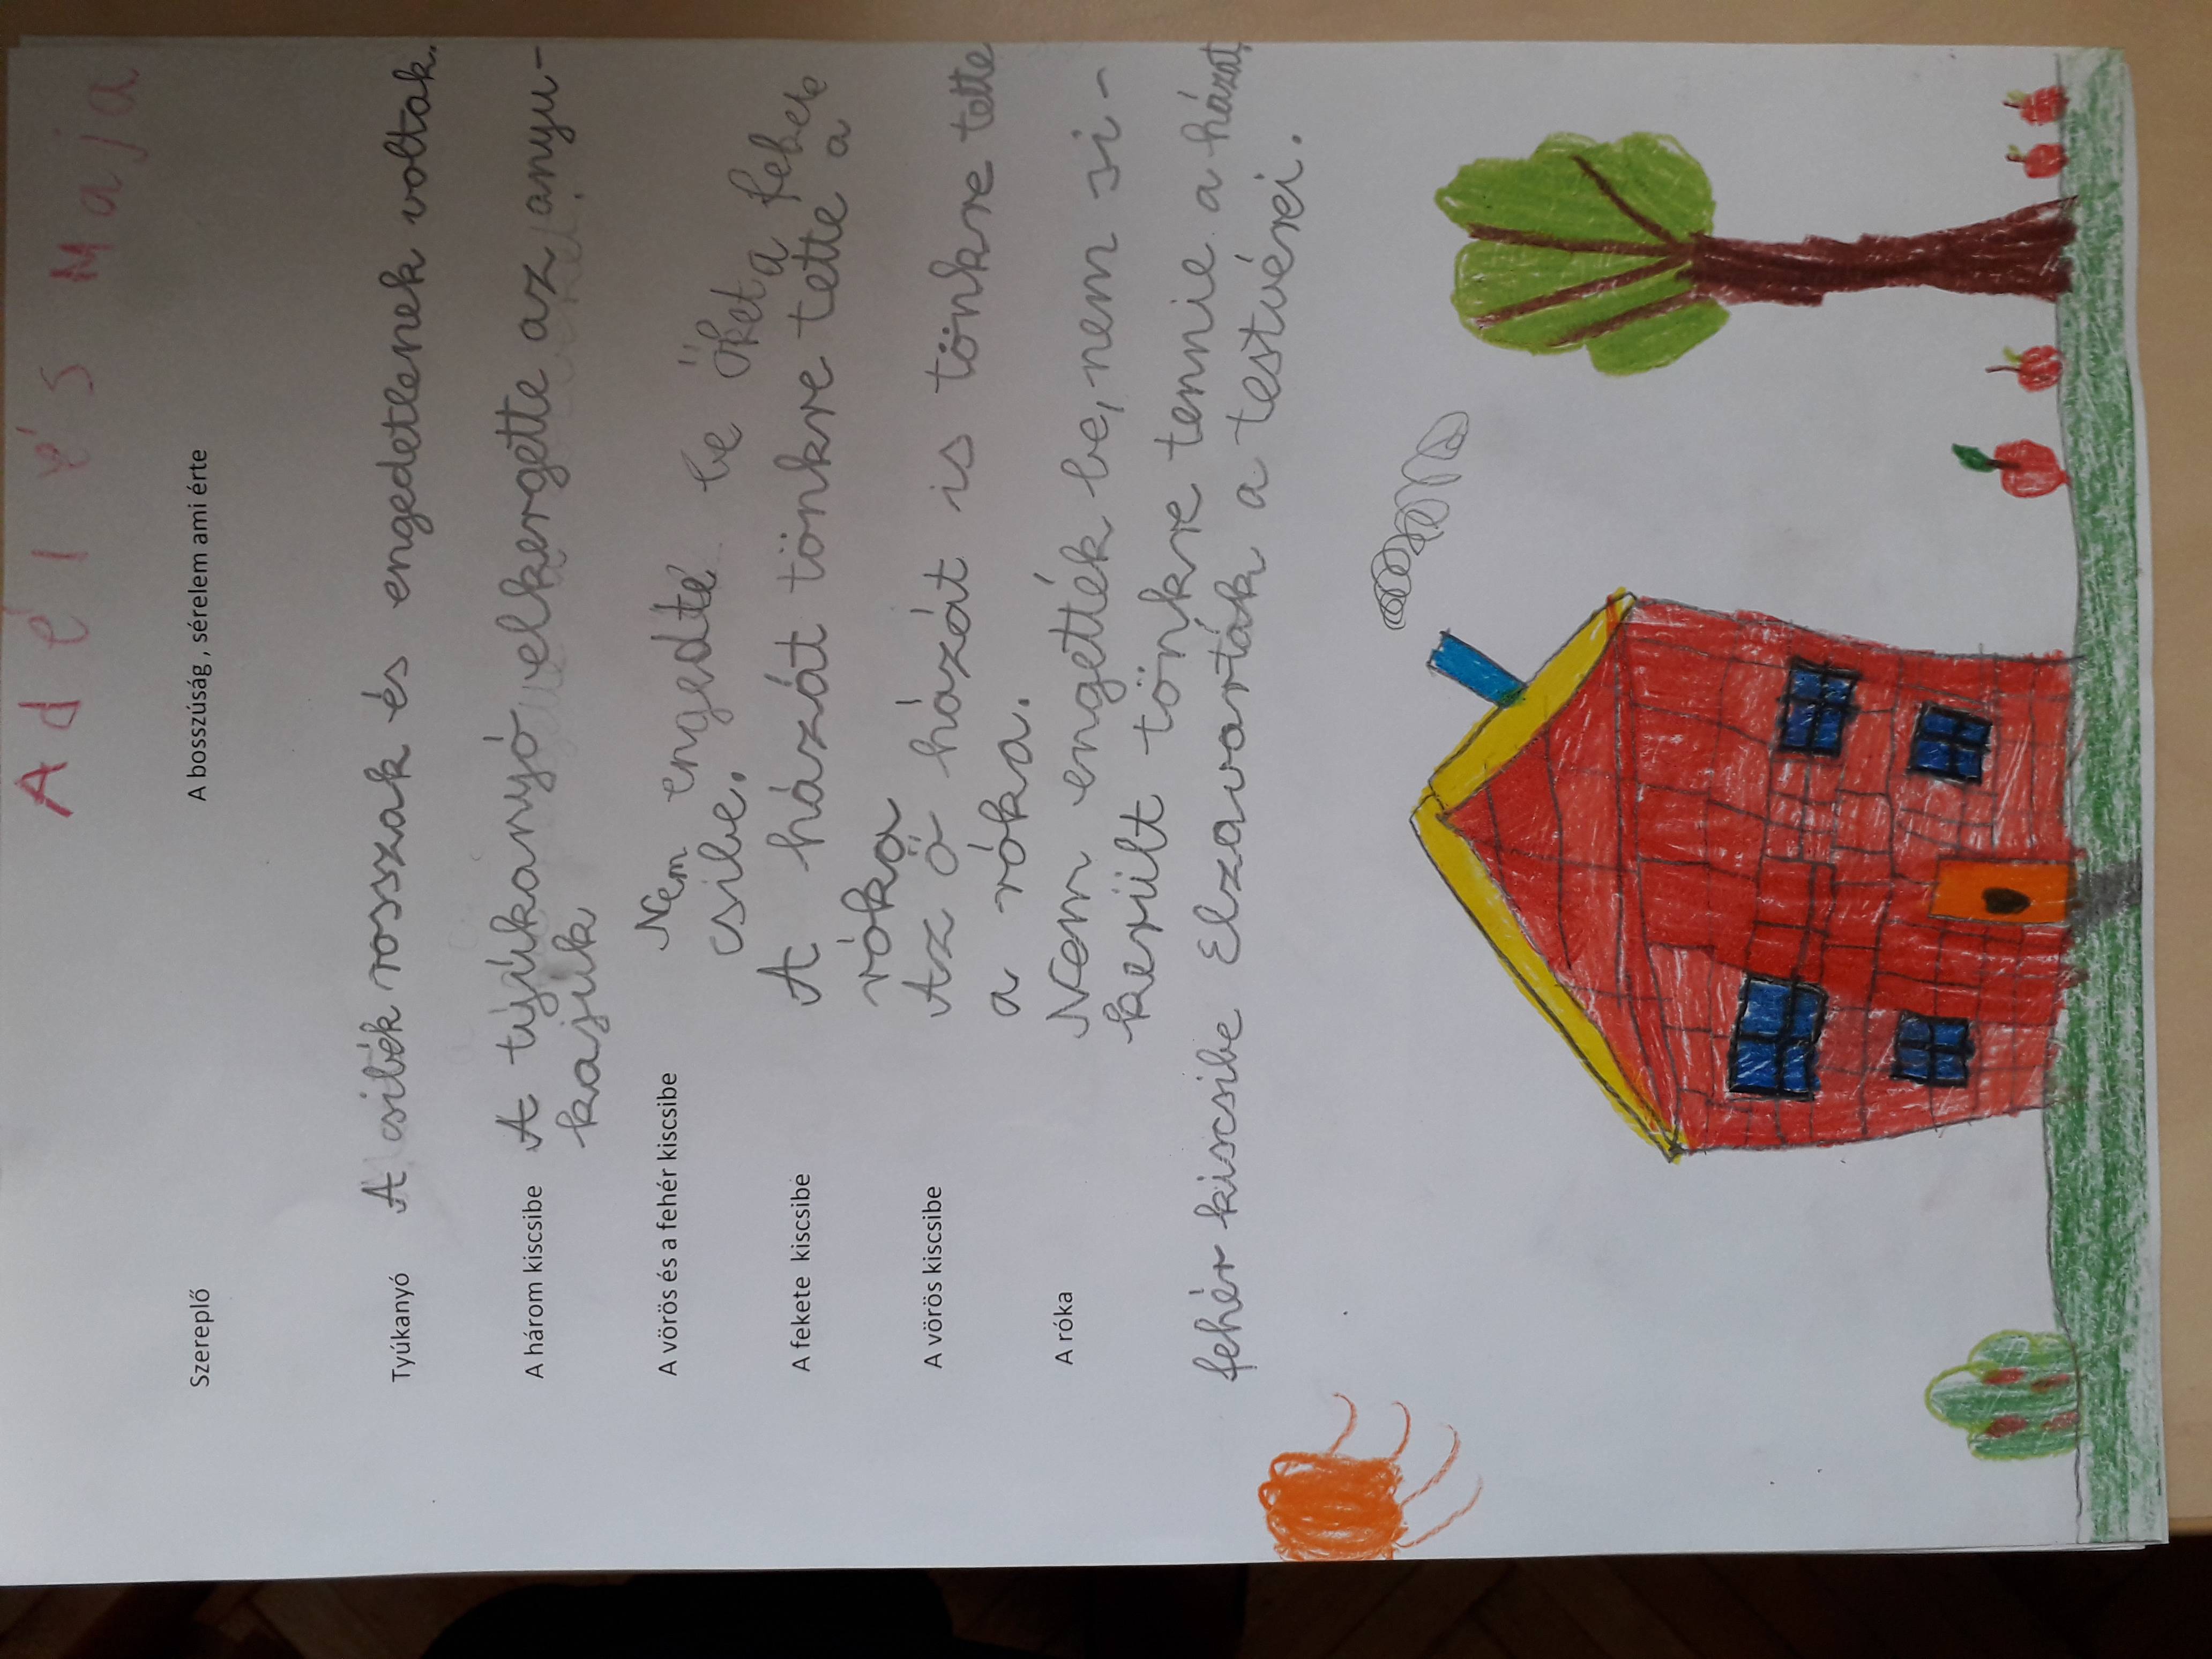 Adél és Maja
Szereplő A bosszúság , sérelem ami érte
Tyúkanyó A csibék rosszak és engedetlenek voltak.
A három kiscsibe A tyúkanyó elkergette az anyu-
kajuk
A vörös és a fehér kiscsibe Nem engedte be őket a fekete
csibe.
A fekete kiscsibe A házát tönkre tette a
róka
A vörös kiscsibe Az ő házát is tönkre tette
a róka.
A róka Nem engették be, nem si-
került tönkre tennie a házat,
fehér kiscsibe Elzavarták a testvérei.